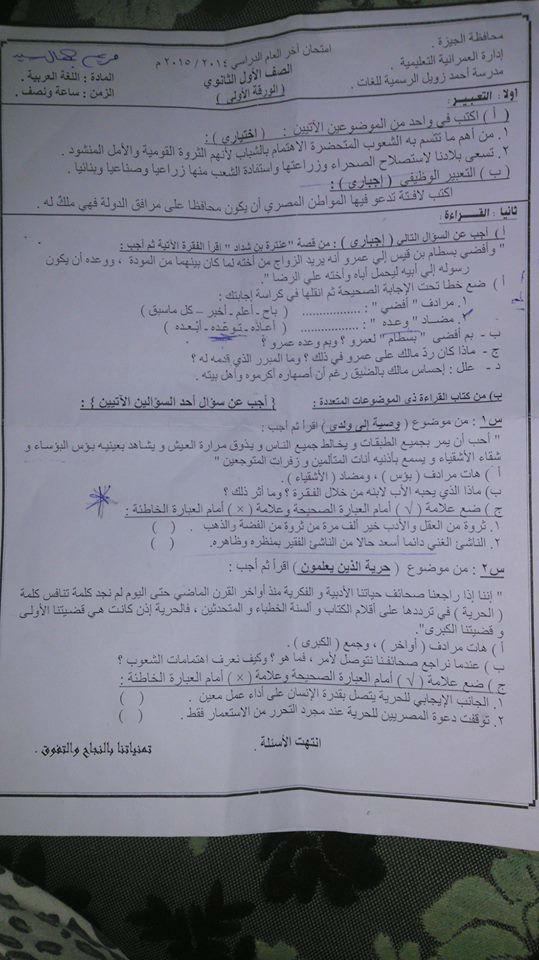 محافظة الجيزة .
إدارة العمرانية التعليمية .
مدرسة أحمد زويل الرسمية للغات .
امتحان آخر العام الدراسي ٢٠١٤ / ٢٠١٥ م
الصف الأول الثانوي
( الورقة الأولى )
المادة : اللغة العربية .
الزمن : ساعة ونصف .
أولا : التعبير :
( أ ) اكتب في واحد من الموضوعين الآتيين : ( اختياري ) :
١. من أهم ما تتسم به الشعوب المتحضرة الاهتمام بالشباب لأنهم الثروة القومية والأمل المنشود .
٢. تسعى بلادنا لاستصلاح الصحراء وزراعتها واستفادة الشعب منها زراعيا وصناعيا وبنائيا .
( ب ) التعبير الوظيفي ( إجباري ) :
اكتب لافتة تدعو فيها المواطن المصري أن يكون محافظا على مرافق الدولة فهي ملك له .
ثانيا : القراءة :
أ ) أجب عن السؤال التالي ( إجباري ) : من قصة "عنترة بن شداد" اقرأ الفقرة الآتية ثم أجب :
" وأفضي بسطام بن قيس إلي عمرو أنه يريد الزواج من أخته لما كان بينهما من المودة ، ووعده أن يكون
رسوله إلي أبيه ليحمل أباه وأخته علي الرضا ".
أ ) ضع خطا تحت الإجابة الصحيحة ثم انقلها في كراسة إجابتك :
١. مرادف " أفضي " : ................. ( باح – أعلم - أخبر – كل ماسبق )
٢. مضاد " وعده " : ................. ( أعاذه – توعّده – أبعده )
ب - بم أفضي " بسطام " لعمرو ؟ وبم وعده عمرو ؟
ج - ماذا كان ردّ مالك على عمرو في ذلك ؟ وما المبرر الذي قدمه له ؟
د - علل : إحساس مالك بالضيق رغم أن أصهاره أكرموه وأهل بيته .
ب) من كتاب القراءة ذي الموضوعات المتعددة : { أجب عن سؤال أحد السؤالين الآتيين } :
س١ : من موضوع ( وصية إلى ولدى ) اقرأ ثم أجب :
" أحب أن يمر بجميع الطبقات و يخالط جميع الناس و يذوق مرارة العيش و يشاهد بعينيه بؤس البؤساء و
شقاء الأشقياء و يسمع بأذنيه أنات المتألمين و زفرات المتوجعين "
أ ) هات مرادف ( بؤس ) ، ومضاد ( الأشقياء ) .
ب) ماذا الذي يحبه الأب لابنه من خلال الفقرة ؟ وما أثر ذلك ؟
ج ) ضع علامة ( √ ) أمام العبارة الصحيحة وعلامة ( × ) أمام العبارة الخاطئة :
١. ثروة من العقل والأدب خير ألف مرة من ثروة من الفضة والذهب . ( )
٢. الناشئ الغني دائما أسعد حالا من الناشئ الفقير بمنظره وظاهره. ( )
س٢ : من موضوع ( حرية الذين يعلمون ) اقرأ ثم أجب :
" إننا إذا راجعنا صحائف حياتنا الأدبية و الفكرية منذ أواخر القرن الماضي حتى اليوم لم نجد كلمة تنافس كلمة
( الحرية ) في ترددها على أقلام الكتاب و ألسنة الخطباء و المتحدثين ، فالحرية إذن كانت هي قضيتنا الأولى
و قضيتنا الكبرى".
أ ) هات مرادف ( أواخر ) ، وجمع ( الكبرى ) .
ب ) عندما نراجع صحائفنا نتوصل لأمر ، فما هو ؟ وكيف نعرف اهتمامات الشعوب ؟
ج ) ضع علامة ( √ ) أمام العبارة الصحيحة وعلامة ( × ) أمام العبارة الخاطئة :
١. الجانب الإيجابي للحرية يتصل بقدرة الإنسان على أداء عمل معين . ( )
٢. توقفت دعوة المصريين للحرية عند مجرد التحرر من الاستعمار فقط . ( )
انتهت الأسئلة .
تمنياتنا بالنجاح والتفوق .